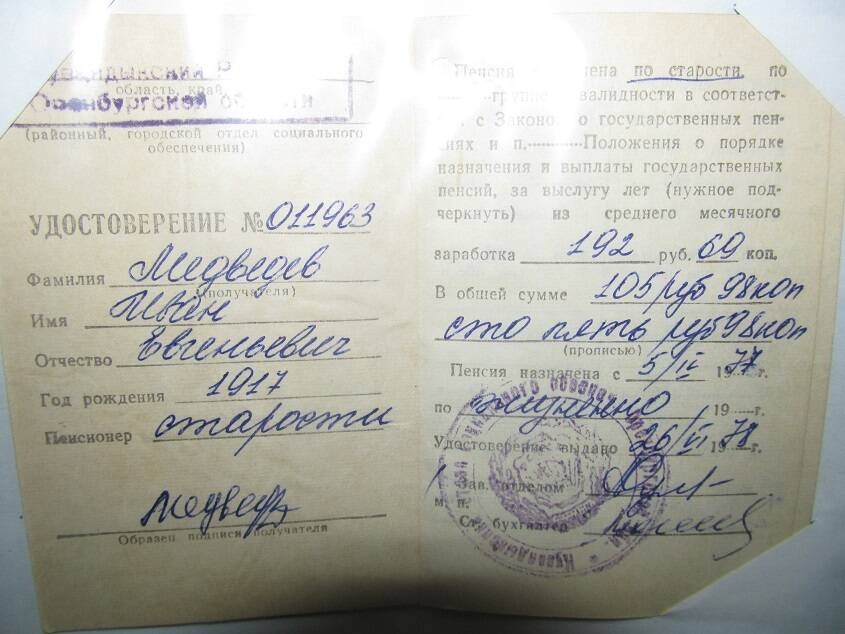 Кувандыкский Р
область, край
Оренбургской области
(районный, городской отдел социального
обеспечения)
УДОСТОВЕРЕНИЕ № 011963
Фамилия Медведев
(получателя)
Имя Иван
Отчество Евгеньевич
Год рождения 1917
Пенсионер старости
Медведев
Образец подписи получателя
Пенсия чена по старости, по
группе валидности в соответст-
с Законо о государственных пен-
иях и п. Положения о порядке
назначения и выплаты государственных
пенсий, за выслугу лет (нужное под-
черкнуть) из среднего месячного
заработка 192 руб. 69 коп.
В общей сумме 105 руб 98 коп
сто пять руб 98 коп
(прописью)
Пенсия назначена с 5/IV 1977 г.
по жизненно 19 г.
Удостоверение выдано 26/VI 1978 г.
Зав. отделом
м. п.
Ст. бухгалтер